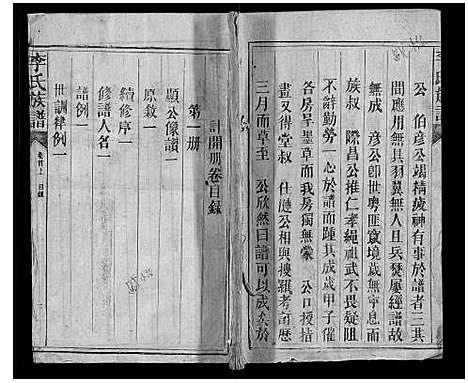 公　伯彦公竭精疲神有事於譜者三其
使無其羽翼無人且兵燹屢經譜故
無成　彦公卽世粵匪竄境歲無寧息而
族叔　際昌公推仁孝繩祖武不畏疑阻
不辭勤勞一心於譜而踵其成歲甲子催
各房呈墨草而我房獨無蒙　公口授指
畫又得堂叔　仕漣公相與搜羅考訂歷
三月而草呈　公欣然曰譜可以成矣於
計開冊卷目錄
第一册
顯公像讚一
原敘一
續修序一
修譜人名一
譜例一
世訓律例一
李氏族譜
卷首上　目錄